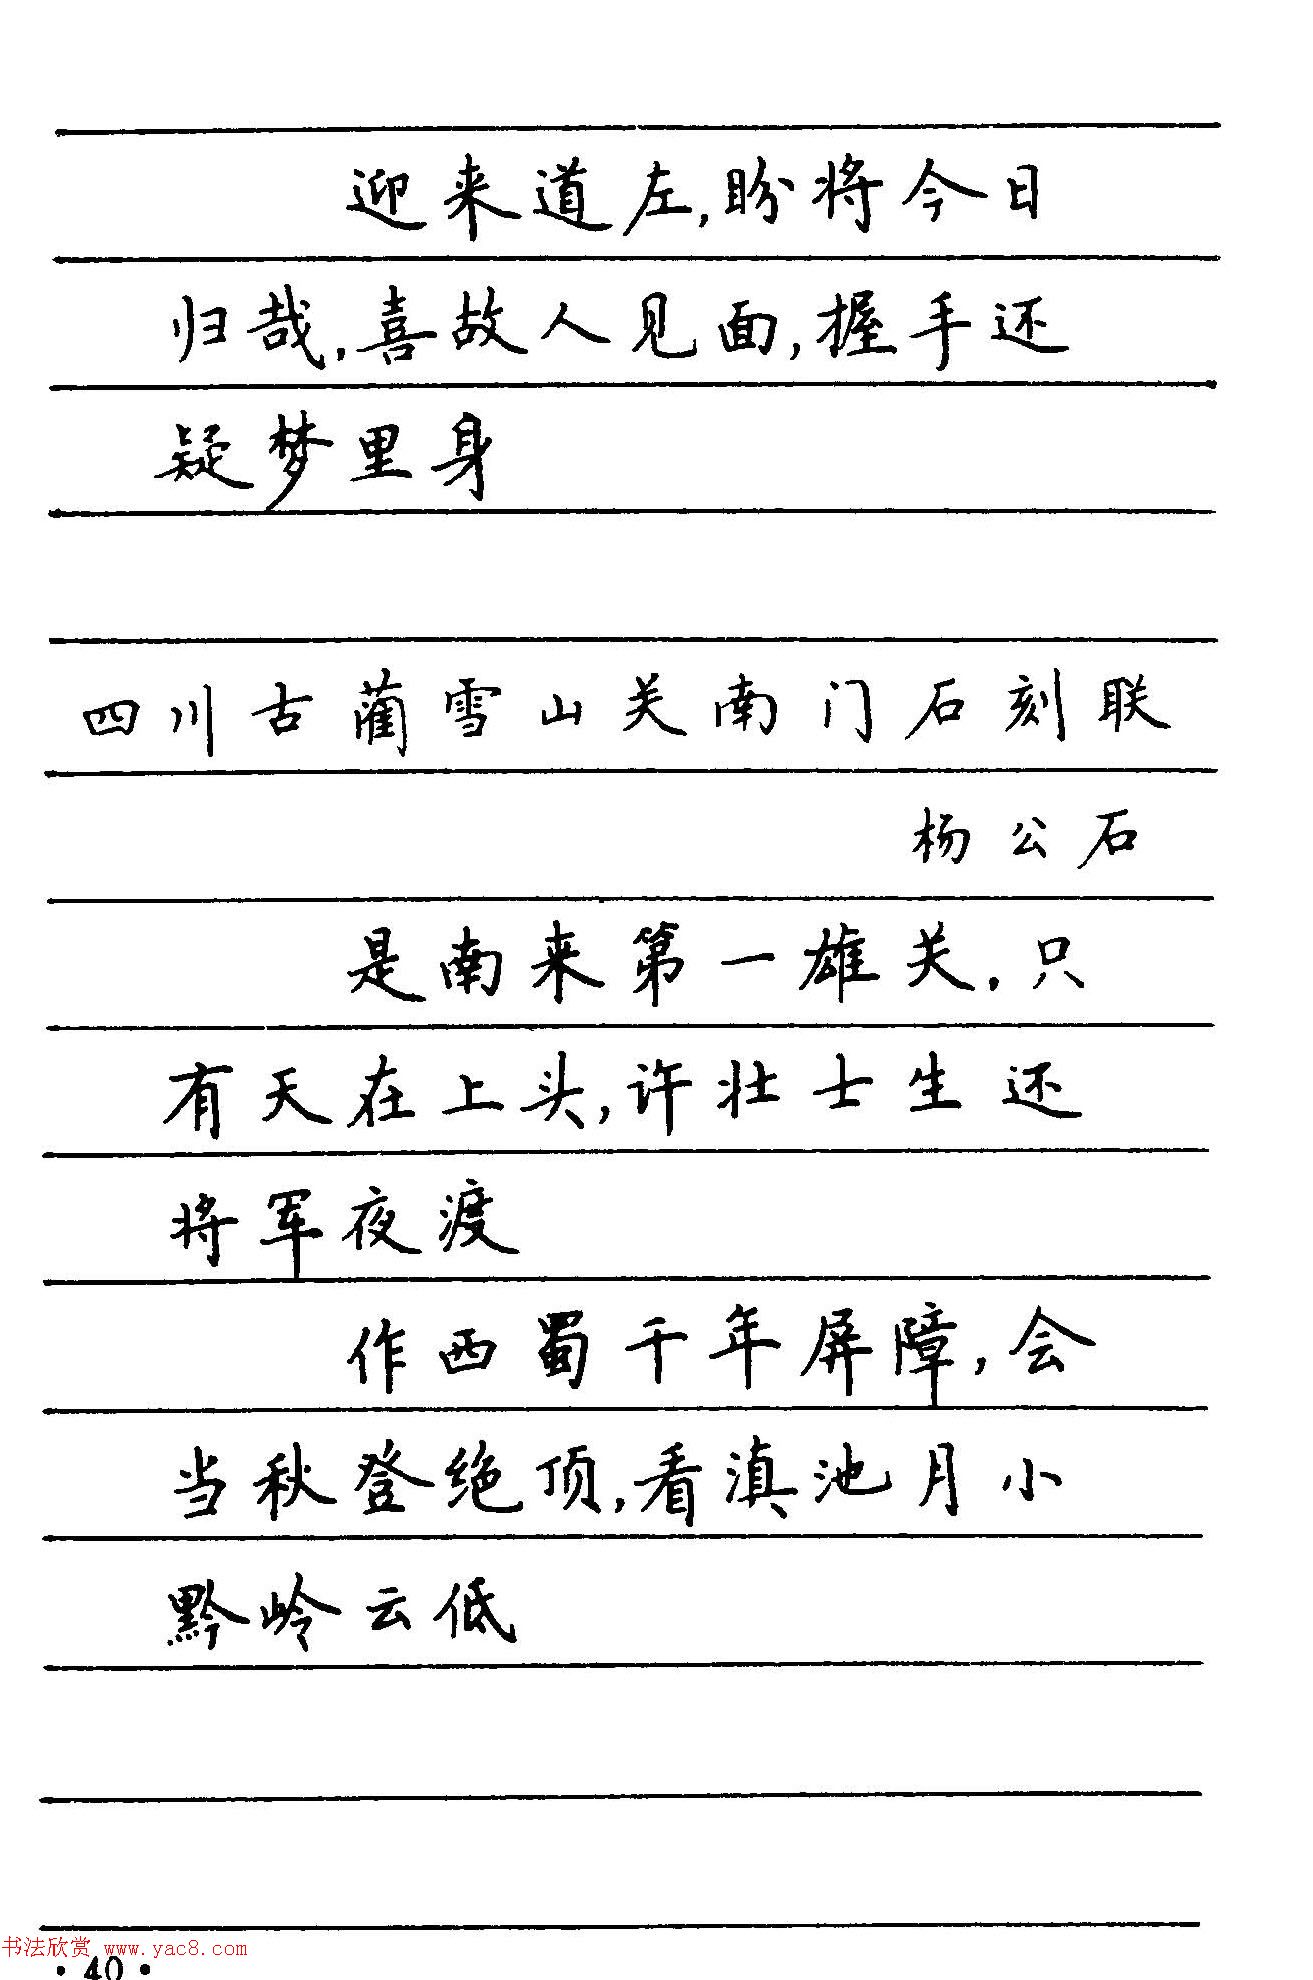 迎来道左，盼将今日
归哉，喜故人见面，握手还
疑梦里身
四川古蔺雪山关南门石刻联
杨公石
是南来第一雄关，只
有天在上头，许壮士生还
将军夜渡
作西蜀千年屏障，会
当秋登绝顶，看滇池月小
黔岭云低
书法欣赏 www.yac8.com
·40·